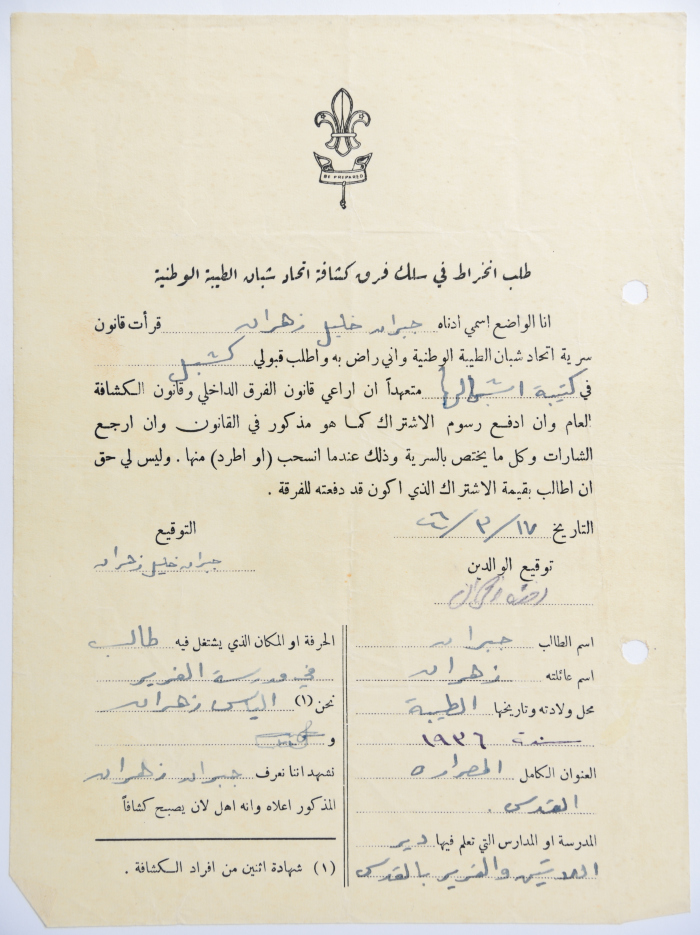 BE PREPARED
طلب انخراط في سلك فرق كشافة اتحاد شبان الطيبة الوطنية
انا الواضع اسمي ادناه جبران خليل زهران قرأت قانون
سرية اتحاد شبان الطيبة الوطنية واني راض به واطلب قبولي كشبل
في كتيبة اشبالها متعهداً ان اراعي قانون الفرق الداخلي وقانون الكشافة
العام وان ادفع رسوم الاشتراك كما هو مذكور في القانون وان ارجع
الشارات وكل ما يختص بالسرية وذلك عندما انسحب (او اطرد) منها. وليس لي حق
ان اطالب بقيمة الاشتراك الذي اكون قد دفعته للفرقة.
التاريخ ١٧/٣/
التوقيع
جبران خليل زهران
توقيع الوالدين
اسم الطالب جبران
اسم عائلته زهران
محل ولادته وتاريخها الطيبة
سنة ١٩٣٦
العنوان الكامل المصراره
القدس.
المدرسة او المدارس التي تعلم فيها دير
اللاتين والفرير بالقدس
الحرفة او المكان الذي يشتغل فيه طالب
في مدرسة الفرير
نحن (١) الياس زهران
و
نشهد اننا نعرف جبران زهران
المذكور اعلاه وانه اهل لان يصبح كشافاً
(١) شهادة اثنين من افراد الكشافة.